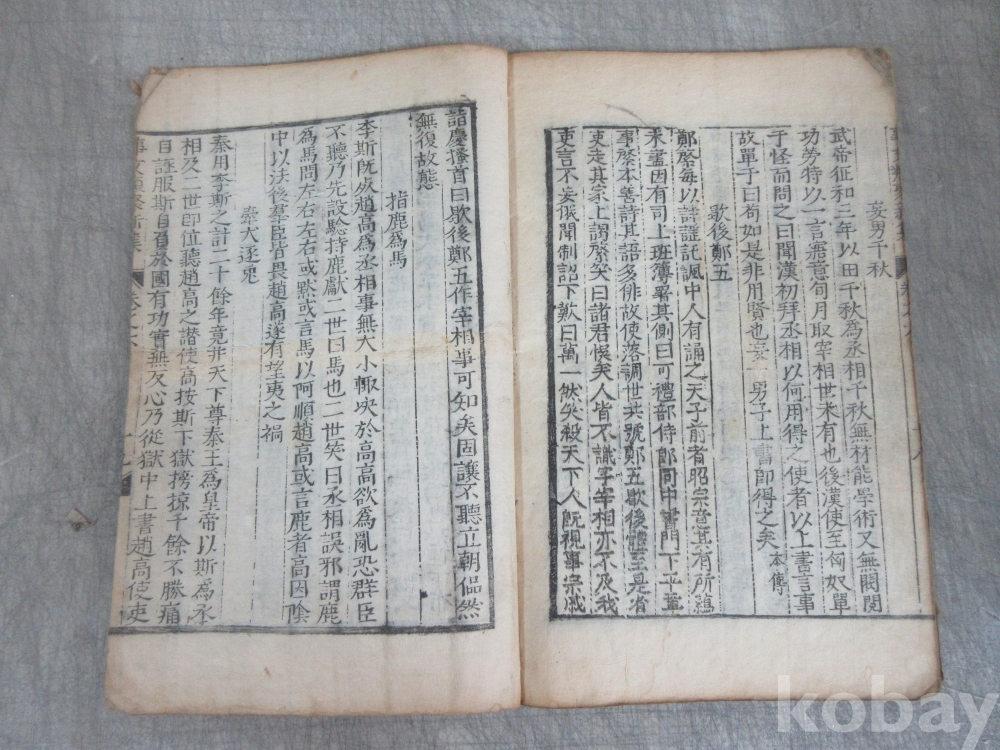 妄男千秋
武帝征和三年以田千秋為丞相千秋無材能學術又無閥閱
功勞特以一言寤意旬月取宰相世未有也後漢使至匈奴單
于怪而問之曰聞漢初拜丞相以何用得之使者以上書言事
故單于曰苟如是非用賢也妄一男子上書即得之矣 本傳
歇後鄭五
鄭綮每以詩謔託諷中人有誦之天子前者昭宗意其有所蘊
未盡因有司上班簿署其側曰可禮部侍郎同中書門下平章
事綮本善詩其語多俳故使落調世共號鄭五歇後體至是省
吏走其家上謁綮笑曰諸君悞矣人皆不識字宰相亦不及我
吏言不妄俄聞制詔下歎曰萬一然笑殺天下人既視事宗戚
詣慶搔首曰歇後鄭五作宰相事可知矣固讓不聽立朝偘然
無復故態
指鹿為馬
李斯既死趙高為丞相事無大小輒决於高高欲為亂恐群臣
不聽乃先設驗持鹿獻二世曰馬也二世笑曰丞相誤邪謂鹿
為馬問左右左右或默或言馬以阿順趙高或言鹿者高因陰
中以法後羣臣皆畏趙高遂有望夷之禍
牽犬逐兎
秦用李斯之計二十餘年竟并天下尊秦王為皇帝以斯為丞
相及二世即位聽趙高之譖使高按斯下獄搒掠千餘不勝痛
自誣服斯自負於國有功實無反心乃從獄中上書趙高使吏
kobay